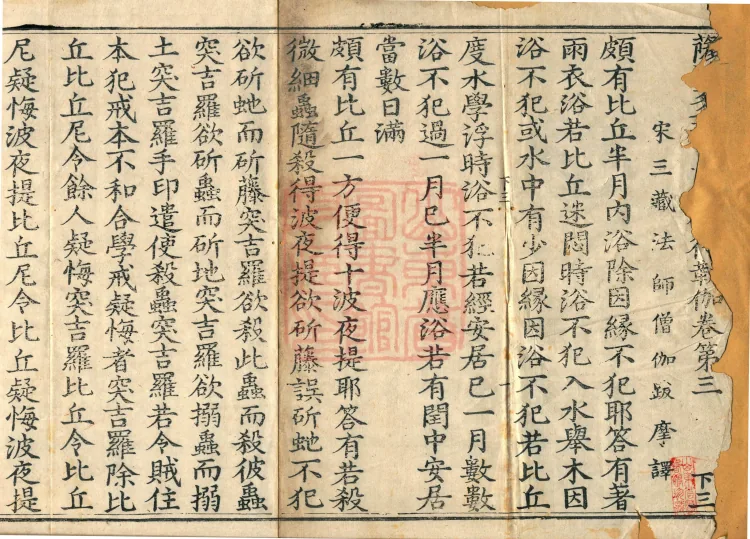 薩多 勒伽卷第三 下三
宋三藏法師僧伽跋摩譯
頗有比丘半月內浴除因緣不犯耶答有著
雨衣浴若比丘迷悶時浴不犯入水舉木因
浴不犯或水中有少因緣因浴不犯若比丘
度水學浮時浴不犯若經安居已一月數數
浴不犯過一月已半月應浴若有閏中安居
當數日滿
頗有比丘一方便得十波夜提耶答有若殺
微細蟲隨殺得波夜提欲斫藤誤斫虵不犯
欲斫虵而斫藤突吉羅欲殺此蟲而殺彼蟲
突吉羅欲斫蟲而斫地突吉羅欲搦蟲而搦
土突吉羅手印遣使殺蟲突吉羅若令賊住
本犯戒本不和合學戒疑悔者突吉羅除比
丘比丘尼令餘人疑悔突吉羅比丘令比丘
尼疑悔波夜提比丘尼令比丘疑悔波夜提
下三